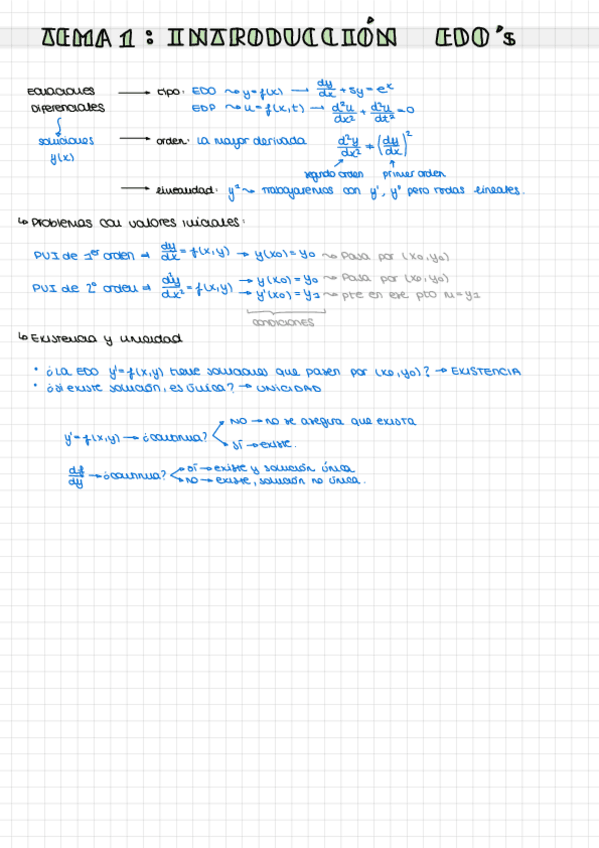 TEMA 1: INTRODUCCIÓN EDO's
Ecuaciones Diferenciales
soluciones y(x)
→ tipo: EDO ⤳ y=f(x) → dy/dx + 5y = eˣ
EDP ⤳ u=f(x,t) → d²u/dx² + d²u/dt² = 0
→ orden: La mayor derivada d²y/dx² + (dy/dx)²
segundo orden primer orden
→ linealidad: yⁿ ⤳ trabajaremos con y', y'' pero todas lineales.
↳ Problemas con valores iniciales:
PVI de 1er orden → dy/dx = f(x,y) → y(x0)=y0 ⤳ Pasa por (x0,y0)
PVI de 2º orden → d²y/dx² = f(x,y) → y(x0)=y0 ⤳ Pasa por (x0,y0)
→ y'(x0)=y1 ⤳ pte en ese pto m=y1
condiciones
↳ Existencia y unicidad
• ¿La EDO y'=f(x,y) tiene soluciones que pasen por (x0,y0)? → EXISTENCIA
• ¿Si existe solución, es única? → UNICIDAD
y'=f(x,y) → ¿continua?
NO → no se asegura que exista
SÍ → existe.
df/dy → ¿continua?
SÍ → existe y solución única
NO → existe, solución no única.